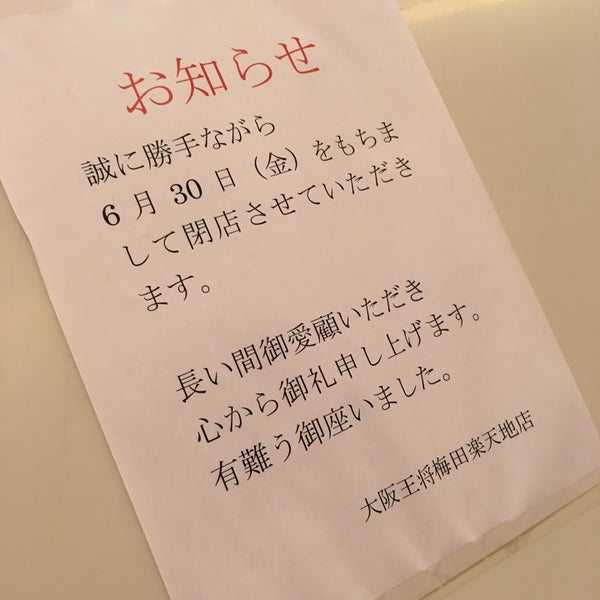 お知らせ
誠に勝手ながら
6 月 30 日（金）をもちま
して閉店させていただき
ます。
長い間御愛顧いただき
心から御礼申し上げます。
有難う御座いました。
大阪王将梅田楽天地店